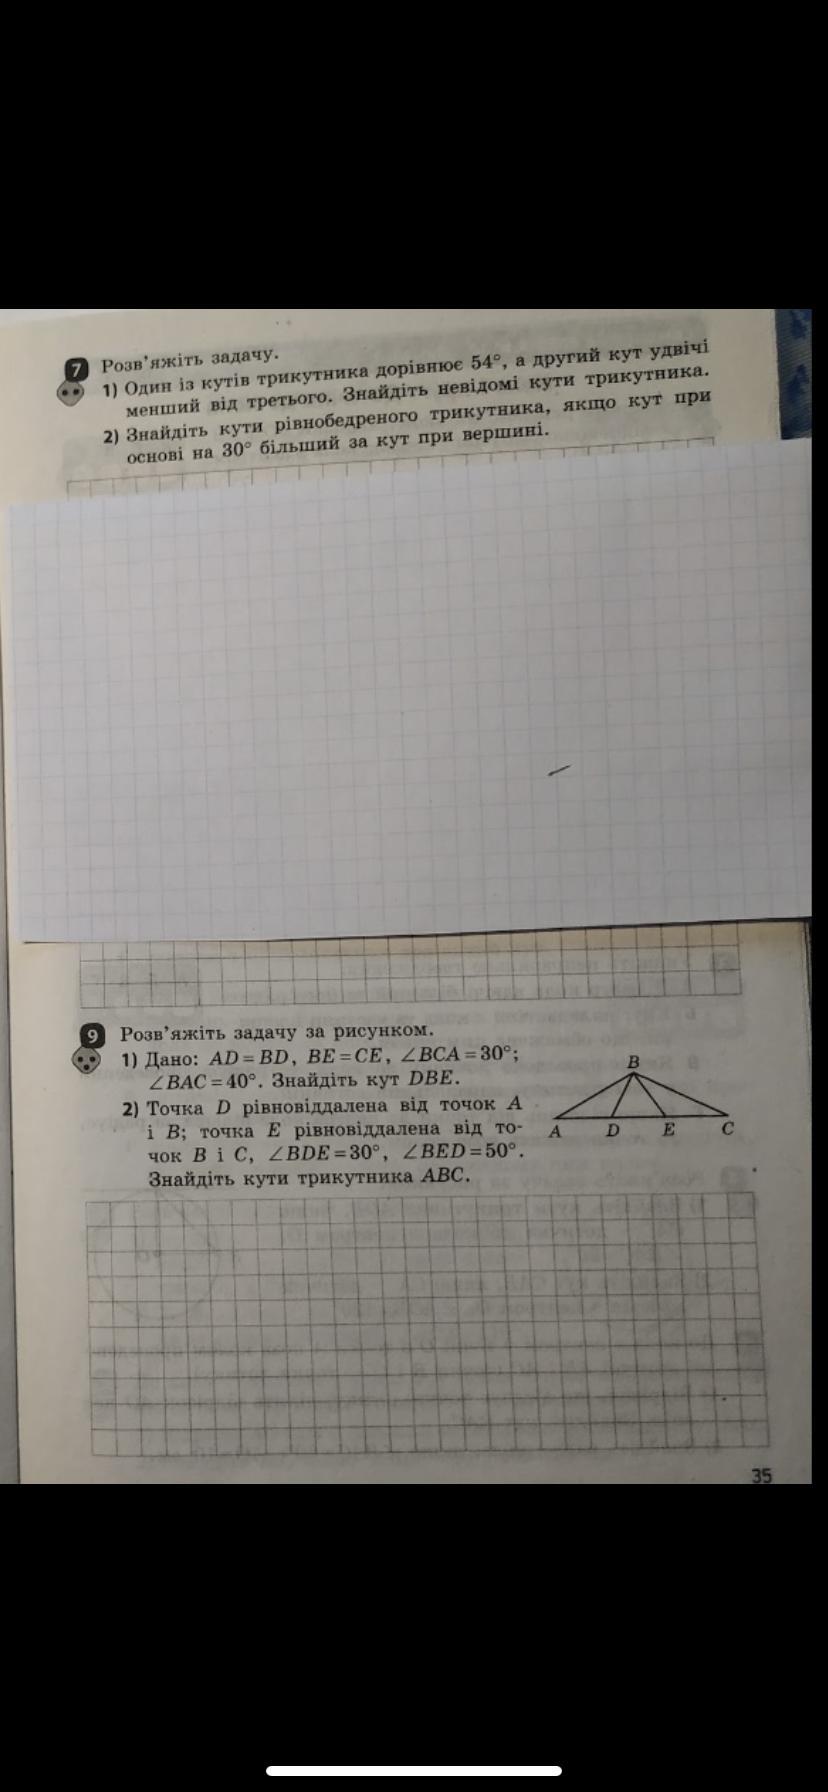 7 Розв'яжіть задачу.
1) Один із кутів трикутника дорівнює 54°, а другий кут удвічі
менший від третього. Знайдіть невідомі кути трикутника.
2) Знайдіть кути рівнобедреного трикутника, якщо кут при
основі на 30° більший за кут при вершині.
9 Розв'яжіть задачу за рисунком.
1) Дано: AD = BD, BE = CE, ∠BCA = 30°;
∠BAC = 40°. Знайдіть кут DBE.
2) Точка D рівновіддалена від точок A
і B; точка E рівновіддалена від то-
чок B і C, ∠BDE = 30°, ∠BED = 50°.
Знайдіть кути трикутника ABC.
B
A D E C
35